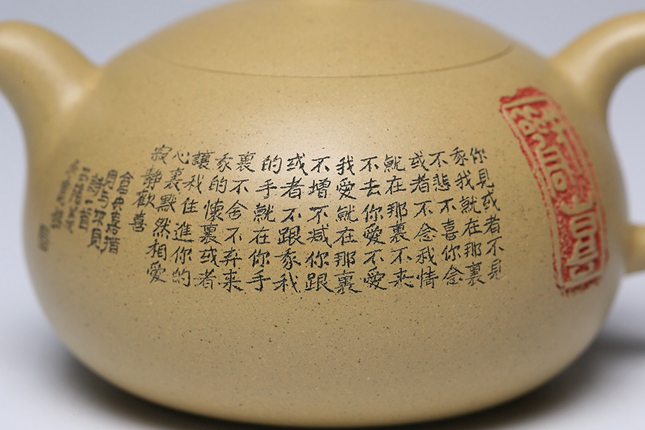 你見或者不見
我我就在那裏
不悲不喜你念
或者不念我情
就在那裏不来
不去你愛不愛
我愛就在那裏
不增不减你跟
或者不跟我我
的手就在你手
裏不舍不弃来
我的懷裏或者
讓我住進你的
心裏默然相愛
寂靜歡喜